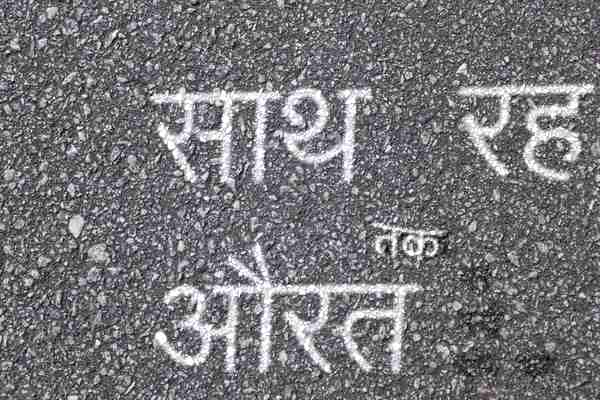 साथ रह
तक
औरत